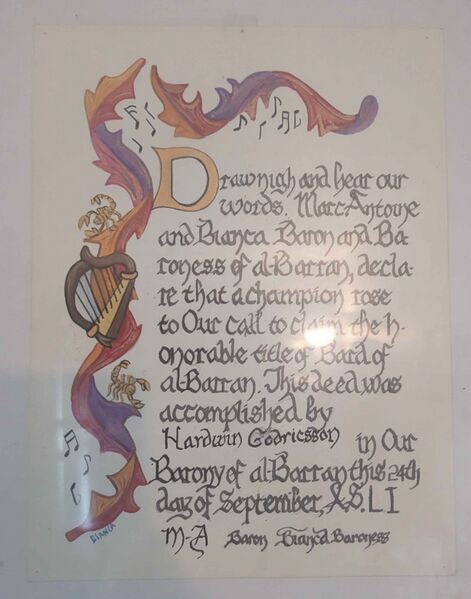 Draw nigh and hear our
words. Marc-Antoine
and Bianca Baron and Ba-
roness of al-Barran, decla-
re that a champion rose
to Our call to claim the h-
onorable title of Bard of
al-Barran. This deed was
accomplished by
Hardwin Godricsson in Our
Barony of al-Barran this 24th
day of September, A.S. LI
M-A Baron Bianca Baroness
BIANCA